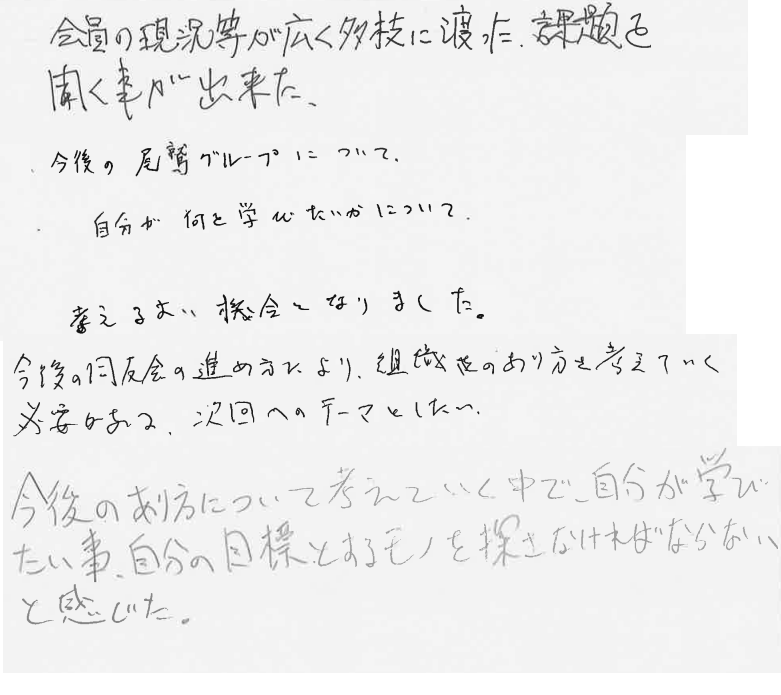 会員の現況等が広く多枝に渡った、課題を
聞く事が出来た、
・今後の尾鷲グループについて、
・自分が何を学びたいかについて、
考えるよい機会となりました。
今後の同友会の進め方により、組織のあり方を考えていく
必要がある、次回へのテーマとしたい、
今後のあり方について考えていく中で、自分が学び
たい事、自分の目標とするモノを探さなければならない、
と感じた。